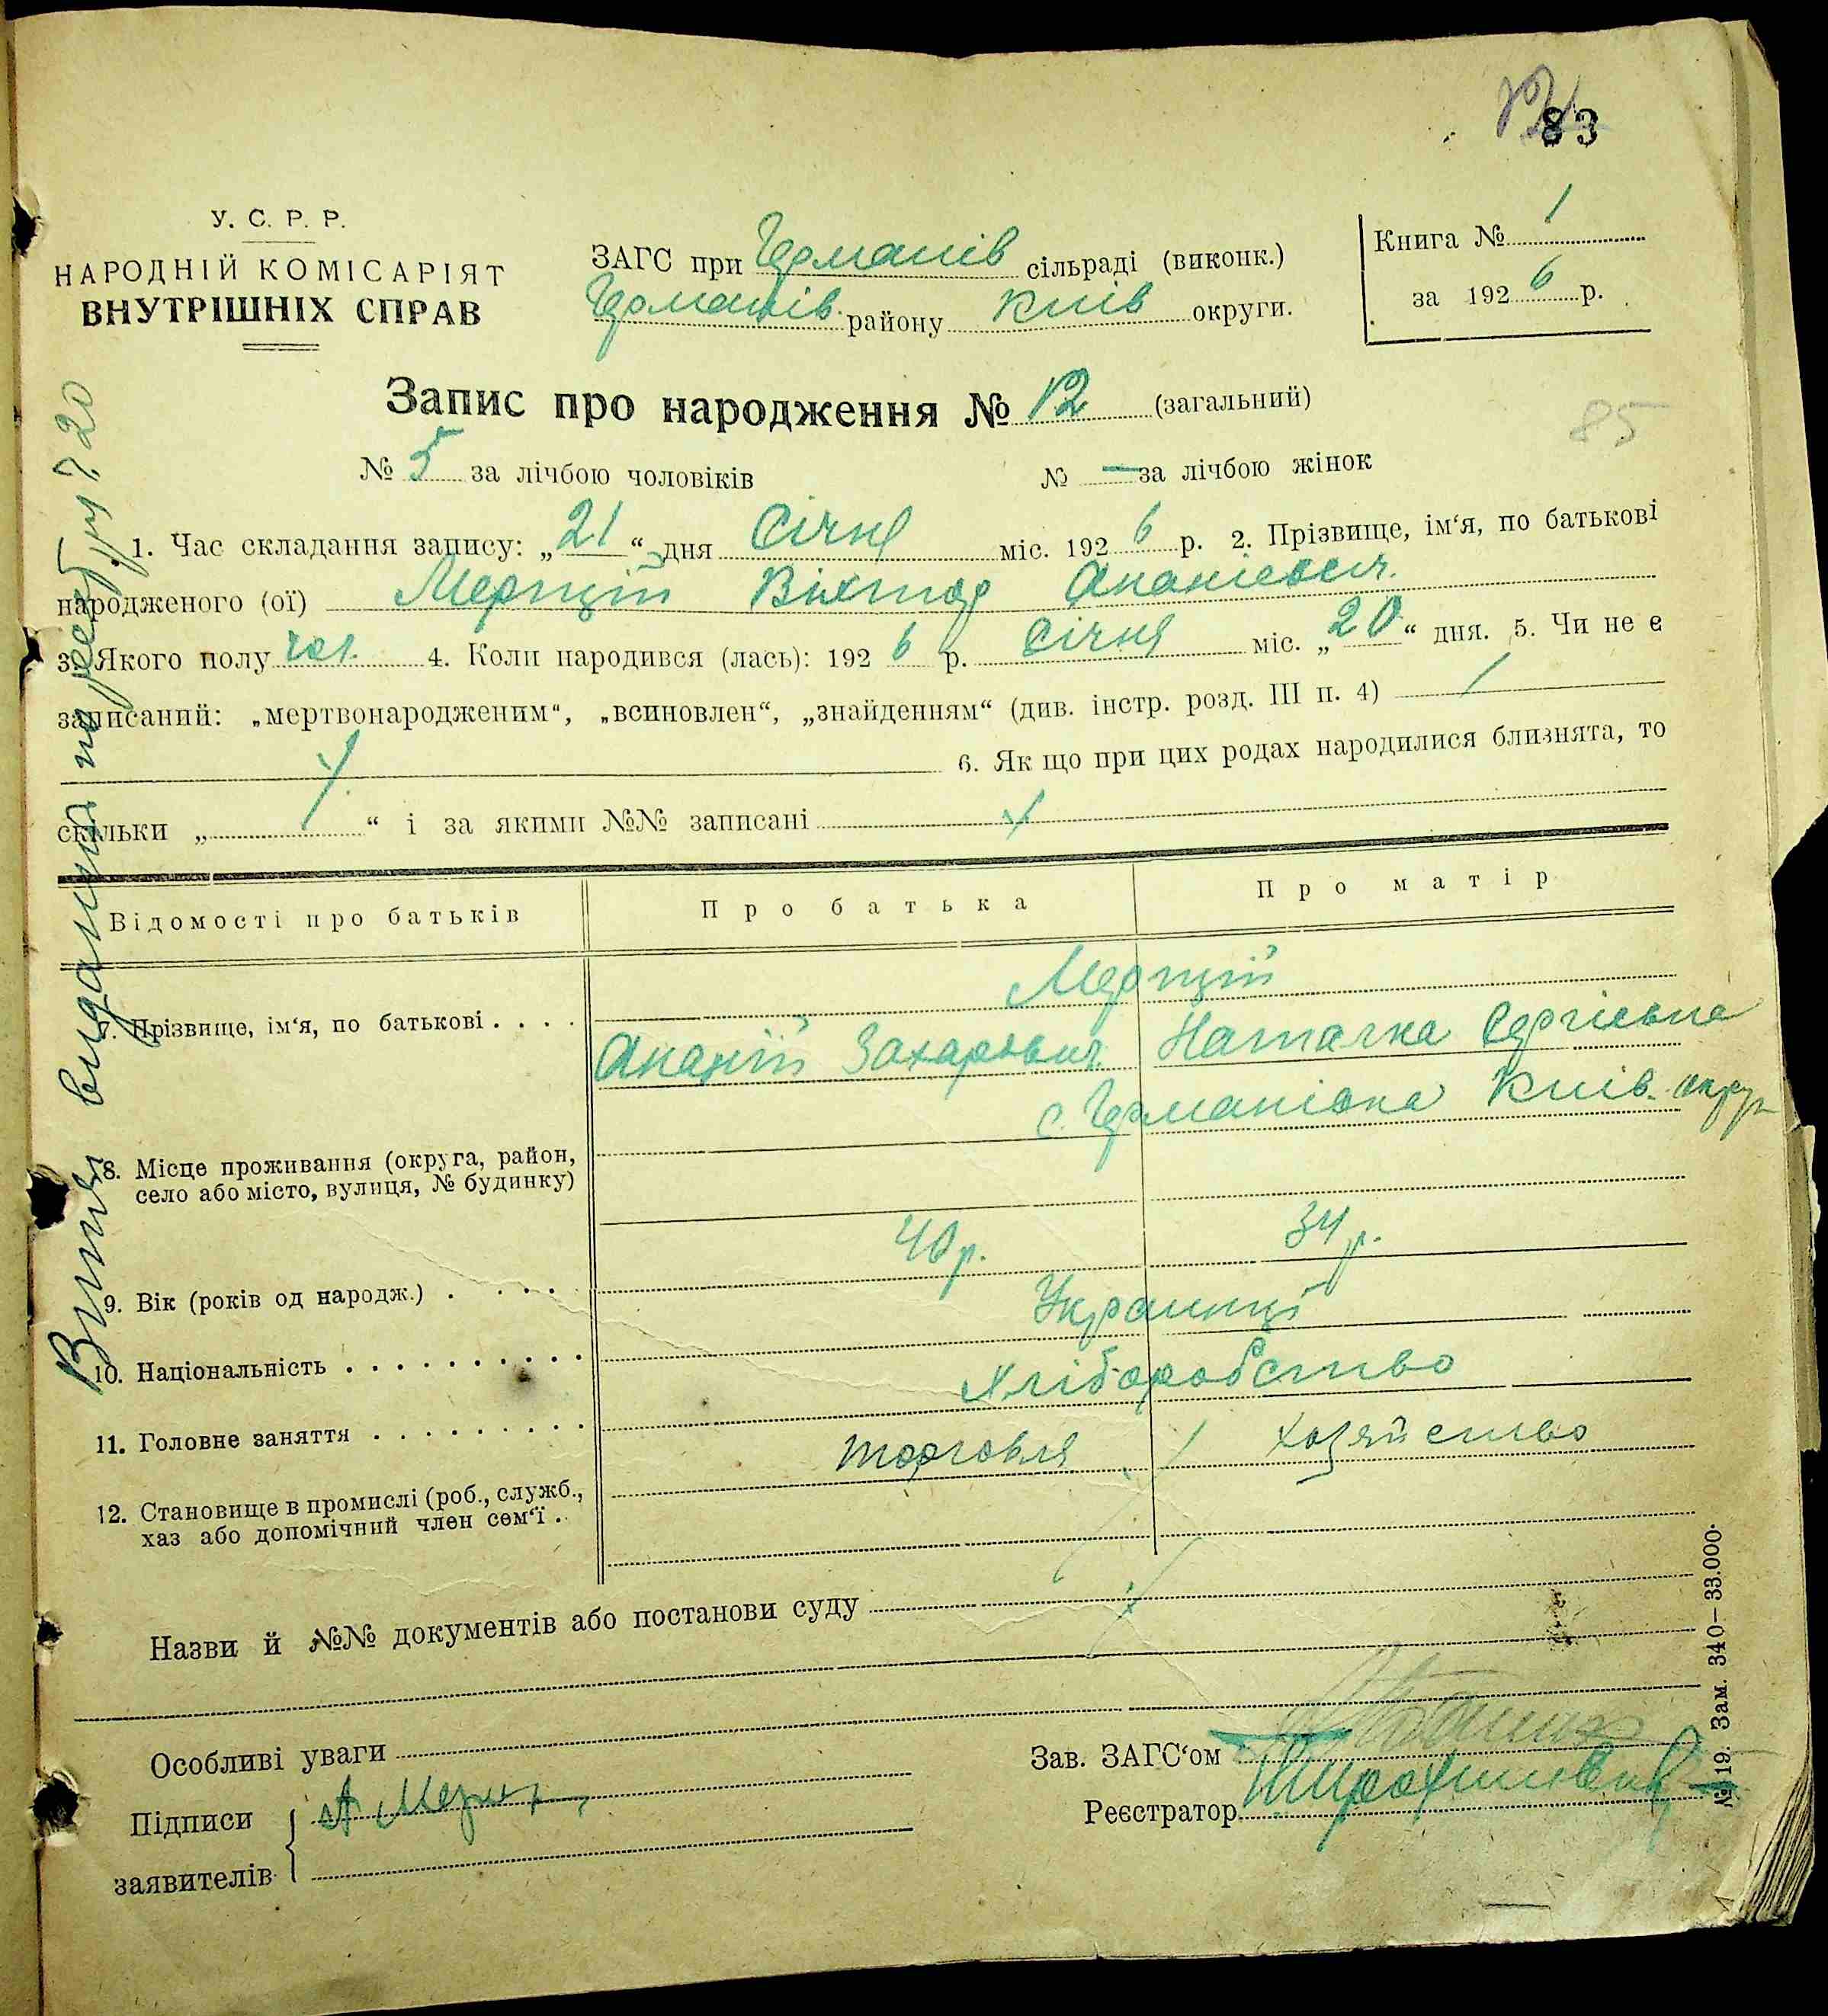 83
У. С. Р. Р.
НАРОДНІЙ КОМІСАРІЯТ
ВНУТРІШНІХ СПРАВ
ЗАГС при Германів сільраді (виконк.)
Германів. району Київ округи.
Книга № 1
за 192 6 р.
Запис про народження № 12 (загальний)
85
№ 5 за лічбою чоловіків № — за лічбою жінок
1. Час складання запису: „ 21 “ дня Січня міс. 192 6 р. 2. Прізвище, ім‘я, по батькові
народженого (ої) Мерщій Віктор Ананієвич.
3. Якого полу чол. 4. Коли народився (лась): 192 6 р. Січня міс. „ 20 “ дня. 5. Чи не є
записаний: „мертвонародженим“, „всиновлен“, „знайденням“ (див. інстр. розд. III п. 4)
6. Як що при цих родах народилися близнята, то
скільки „ “ і за якими №№ записані
Відомості про батьків Про батька Про матір
7. Прізвище, ім‘я, по батькові . . . .
Мерщій
Ананій Захарович. Наталка Сергієвна
с. Германівка Київ. округ
8. Місце проживання (округа, район,
село або місто, вулиця, № будинку)
9. Вік (років од народж.) . . . . 40 р. 34 р.
10. Національність . . . . . . . . . . Українці
11. Головне заняття . . . . . . . . . Хліборобство
торговля хозяйство
12. Становище в промислі (роб., служб.,
хаз або допомічний член сем‘ї .
Назви й №№ документів або постанови суду
Особливі уваги
Зав. ЗАГС‘ом
Підписи
заявителів
А Мерщ
Реєстратор
№ 19. Зам. 340–33.000.
Витяг виданий по реєстру 720